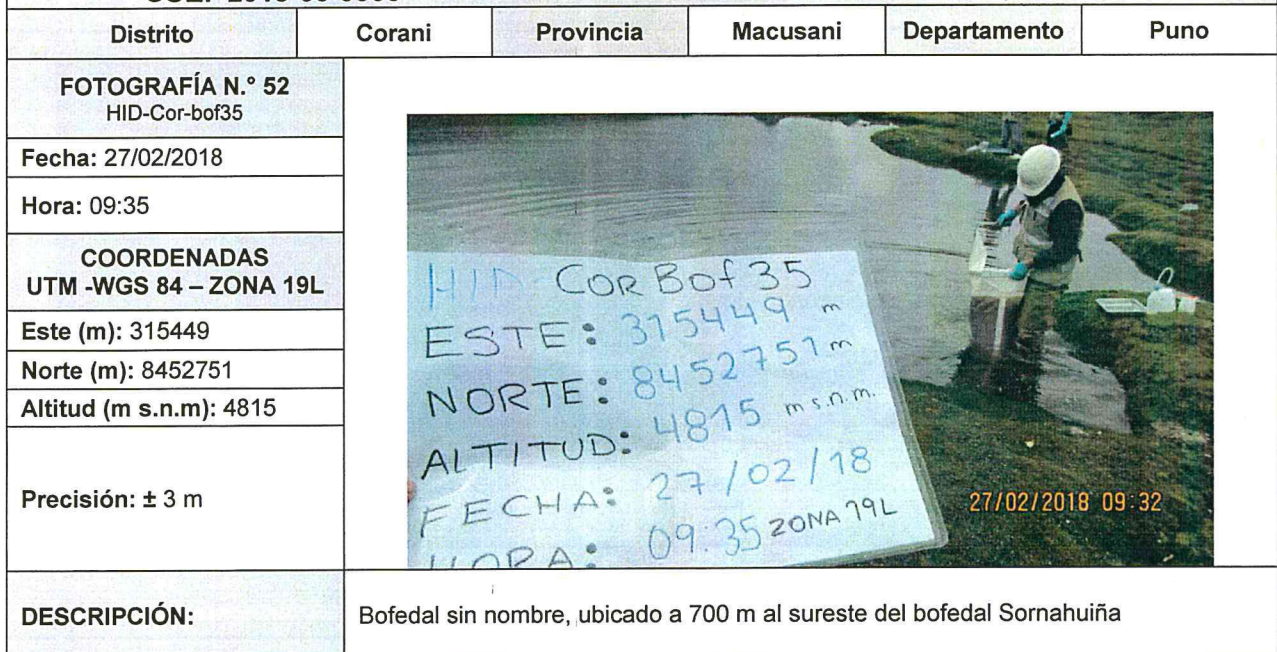 Distrito Corani Provincia Macusani Departamento Puno
FOTOGRAFÍA N.° 52
HID-Cor-bof35
Fecha: 27/02/2018
Hora: 09:35
COORDENADAS
UTM -WGS 84 – ZONA 19L
Este (m): 315449
Norte (m): 8452751
Altitud (m s.n.m): 4815
Precisión: ± 3 m
HID-COR Bof 35
ESTE: 315449 m
NORTE: 8452751 m
ALTITUD: 4815 m s.n.m.
FECHA: 27/02/18
HORA: 09:35 ZONA 19L
27/02/2018 09:32
DESCRIPCIÓN: Bofedal sin nombre, ubicado a 700 m al sureste del bofedal Sornahuiña